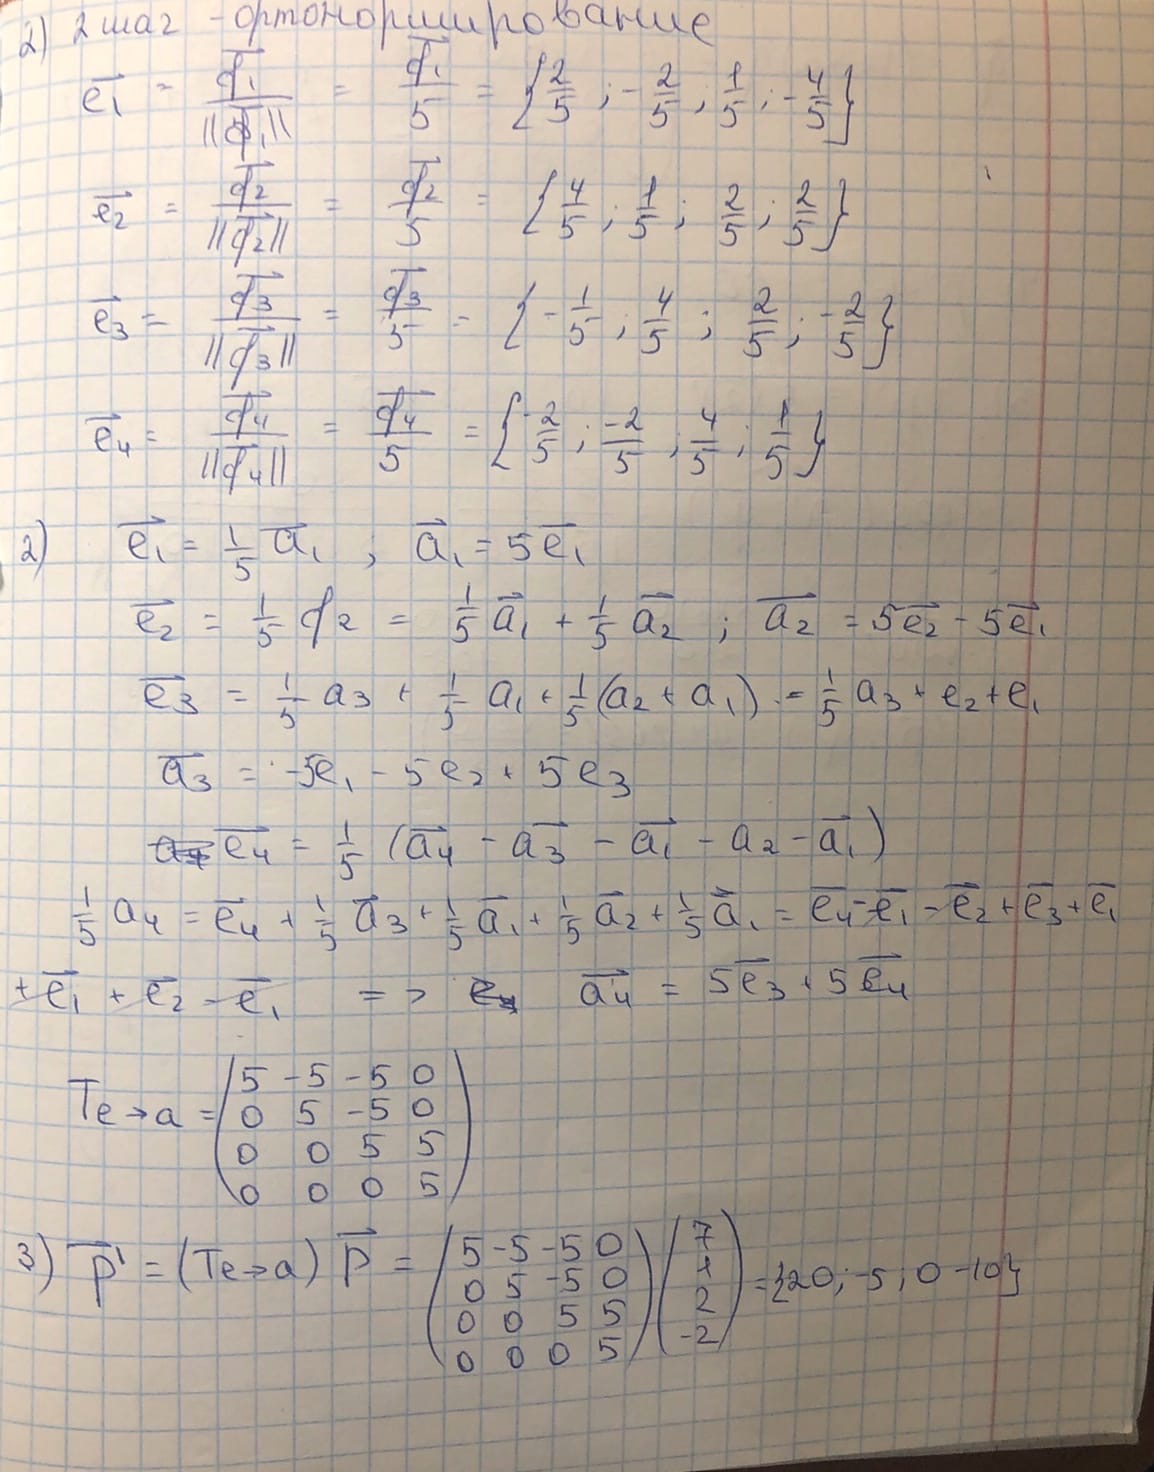 2) 2 шаг - ортонормирование
e₁ = q₁/||q₁|| = q₁/5 = {2/5 ; -2/5 ; 1/5 ; -4/5}
e₂ = q₂/||q₂|| = q₂/5 = {4/5 ; 1/5 ; 2/5 ; 2/5}
e₃ = q₃/||q₃|| = q₃/5 = {-1/5 ; 4/5 ; 2/5 ; -2/5}
e₄ = q₄/||q₄|| = q₄/5 = {-2/5 ; -2/5 ; 4/5 ; 1/5}
2) e₁ = 1/5 a₁ ; a₁ = 5e₁
e₂ = 1/5 q₂ = 1/5 a₁ + 1/5 a₂ ; a₂ = 5e₂ - 5e₁
e₃ = 1/5 a₃ + 1/5 a₁ + 1/5 (a₂ + a₁) = 1/5 a₃ + e₂ + e₁
a₃ = -5e₁ - 5e₂ + 5e₃
e₄ = 1/5 (a₄ - a₃ - a₁ - a₂ - a₁)
1/5 a₄ = e₄ + 1/5 a₃ + 1/5 a₁ + 1/5 a₂ + 1/5 a₁ = e₄ - e₁ - e₂ + e₃ + e₁
+ e₁ + e₂ - e₁ => a₄ = 5e₃ + 5e₄
Te→a = (5 -5 -5 0
0 5 -5 0
0 0 5 5
0 0 0 5)
3) p' = (Te→a) p = (5 -5 -5 0 / 0 5 -5 0 / 0 0 5 5 / 0 0 0 5) (7 / 1 / 2 / -2) = {20; -5; 0 -10}